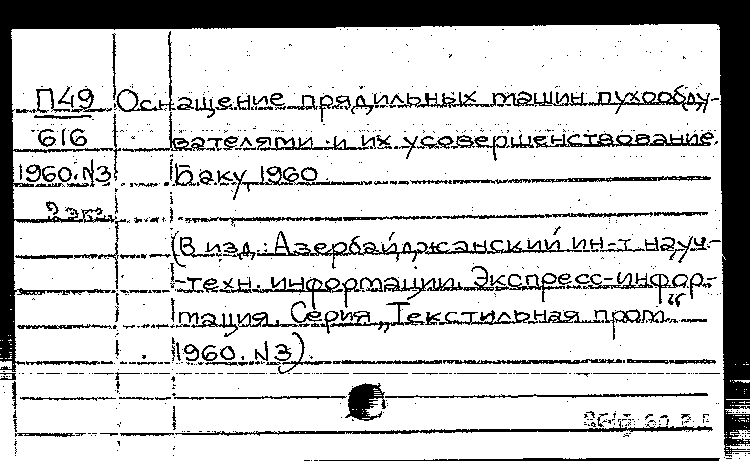 П49 Оснащение прядильных машин пухообду-
616 вателями и их усовершенствование.
1960.N3 Баку, 1960.
2 экз.
(В изд.: Азербайджанский ин-т науч-
-техн. информации. Экспресс-инфор-
мация. Серия „Текстильная пром.“
1960. N3).